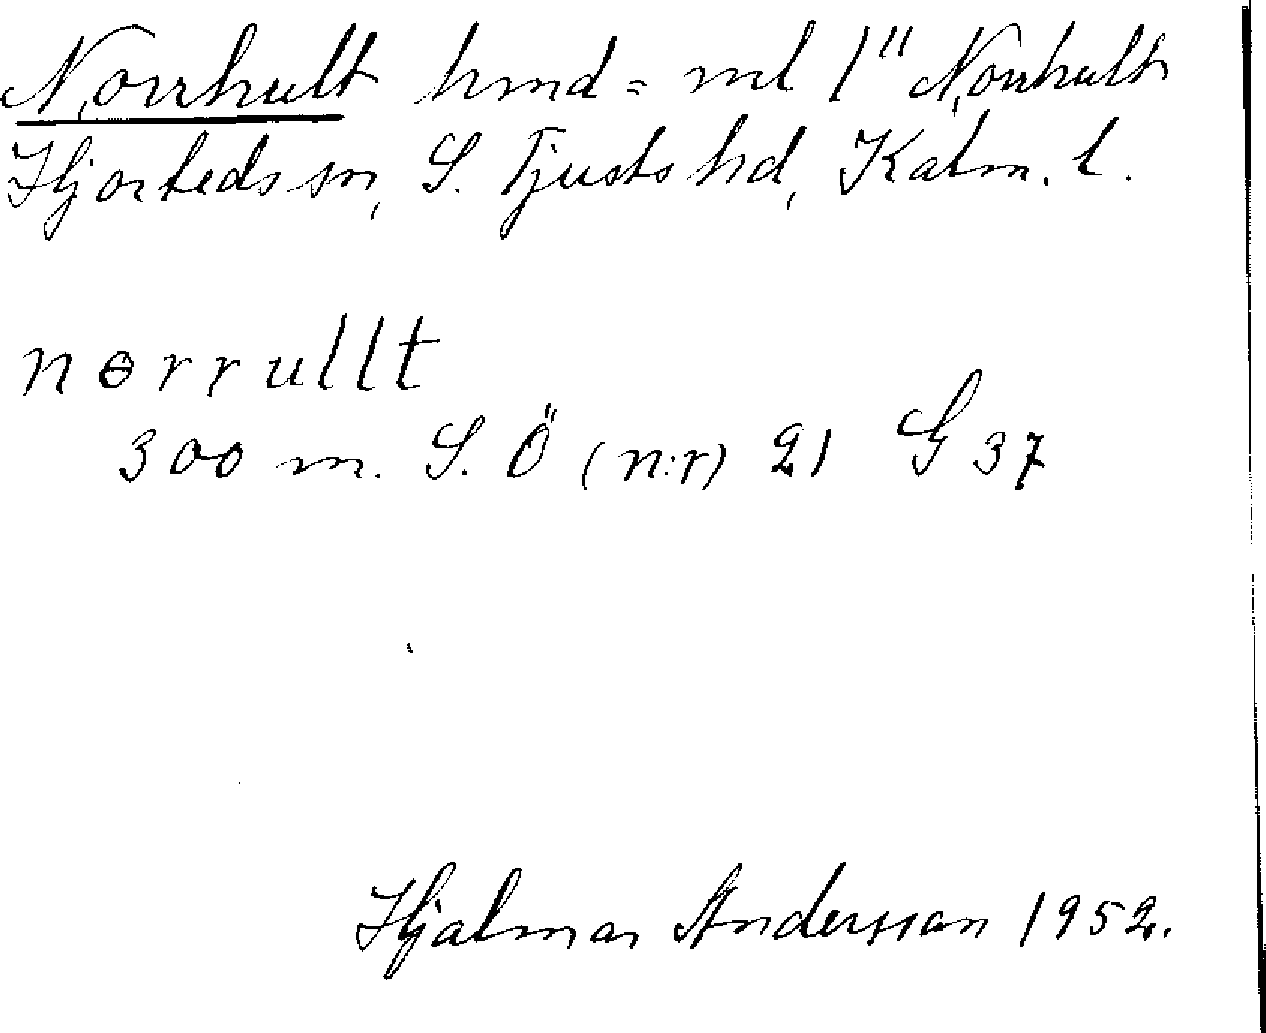 Norrhult hmd = ml 1" Norrhult
Hjorteds sn, S. Tjusts hd, Kalm. l.
nɵrrullt
300 m. S. Ö (n:r) 21 G 37
Hjalmar Andersson 1952.